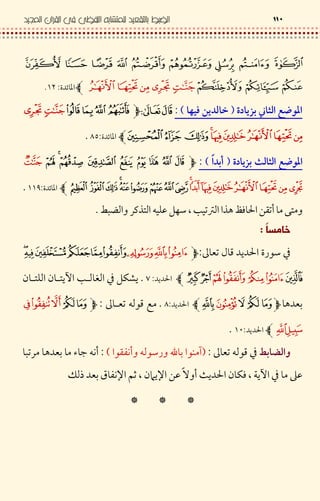 ١١٠ الضبط بالتقعيد للمتشابه اللفظي في القرآن المجيد
ٱلزَّكَوٰةَ وَءَامَنتُم بِرُسُلِى وَعَزَّرْتُمُوهُمْ وَأَقْرَضْتُمُ ٱللَّهَ قَرْضًا حَسَنًا لَّأُكَفِّرَنَّ
عَنكُمْ سَيِّـَٔاتِكُمْ وَلَأُدْخِلَنَّكُمْ جَنَّٰتٍ تَجْرِى مِن تَحْتِهَا ٱلْأَنْهَٰرُ ﴾ المائدة: ١٢ .
الموضع الثاني بزيادة ( خالدين فيها ) : ﴿ فَأَثَٰبَهُمُ ٱللَّهُ بِمَا قَالُوا۟ جَنَّٰتٍ تَجْرِى
مِن تَحْتِهَا ٱلْأَنْهَٰرُ خَٰلِدِينَ فِيهَا ۚ وَذَٰلِكَ جَزَآءُ ٱلْمُحْسِنِينَ ﴾ المائدة: ٨٥ .
الموضع الثالث بزيادة ( أبداً ) : ﴿ قَالَ ٱللَّهُ هَٰذَا يَوْمُ يَنفَعُ ٱلصَّٰدِقِينَ صِدْقُهُمْ ۚ لَهُمْ جَنَّٰتٌ
تَجْرِى مِن تَحْتِهَا ٱلْأَنْهَٰرُ خَٰلِدِينَ فِيهَآ أَبَدًا ۚ رَّضِىَ ٱللَّهُ عَنْهُمْ وَرَضُوا۟ عَنْهُ ۚ ذَٰلِكَ ٱلْفَوْزُ ٱلْعَظِيمُ ﴾ المائدة: ١١٩ .
ومتى ما أتقن الحافظ هذا الترتيب ، سهل عليه التذكر والضبط .
خامساً :
في سورة الحديد قال تعالى: ﴿ ءَامِنُوا۟ بِٱللَّهِ وَرَسُولِهِۦ وَأَنفِقُوا۟ مِمَّا جَعَلَكُم مُّسْتَخْلَفِينَ فِيهِ ۖ
فَٱلَّذِينَ ءَامَنُوا۟ مِنكُمْ وَأَنفَقُوا۟ لَهُمْ أَجْرٌ كَبِيرٌ ﴾ الحديد: ٧ . يشكل في الغالب الآيتان اللتان
بعدها ﴿ وَمَا لَكُمْ لَا تُؤْمِنُونَ بِٱللَّهِ ﴾ الحديد: ٨ . مع قوله تعالى : ﴿ وَمَا لَكُمْ أَلَّا تُنفِقُوا۟ فِى
سَبِيلِ ٱللَّهِ ﴾ الحديد: ١٠ .
والضابط في قوله تعالى : (آمنوا بالله ورسوله وأنفقوا ) : أنه جاء ما بعدها مرتبا
على ما في الآية ، فكان الحديث أولاً عن الإيمان ، ثم الإنفاق بعد ذلك
* * *